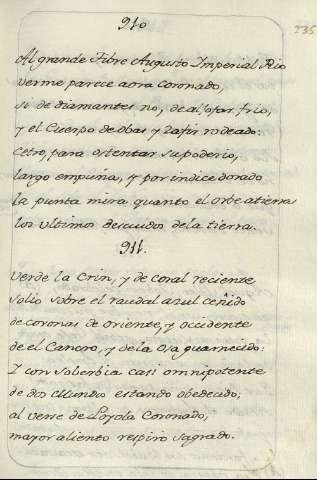 910
235
Al grande Tibre Augusto Imperial Rio
verme parece aora Coronado,
si de diamantes no, de aljofar frio,
y el Cuerpo de obas y Zafir rodeado:
Cetro, para ostentar su poderio,
largo empuña, y por indice dorado
la punta mira quanto el orbe atierra
los ultimos descuidos de la tierra.
911.
Verde la Crin, y de coral reciente
Solio sobre el raudal azul ceñido
de coronas de oriente, y occidente
de el Cancro, y de la Osa guarnecido:
I con Soberbia casi omnipotente
de dos Mundos estando obedecido;
al verse de Loyola Coronado,
mayor aliento respiro sagrado.